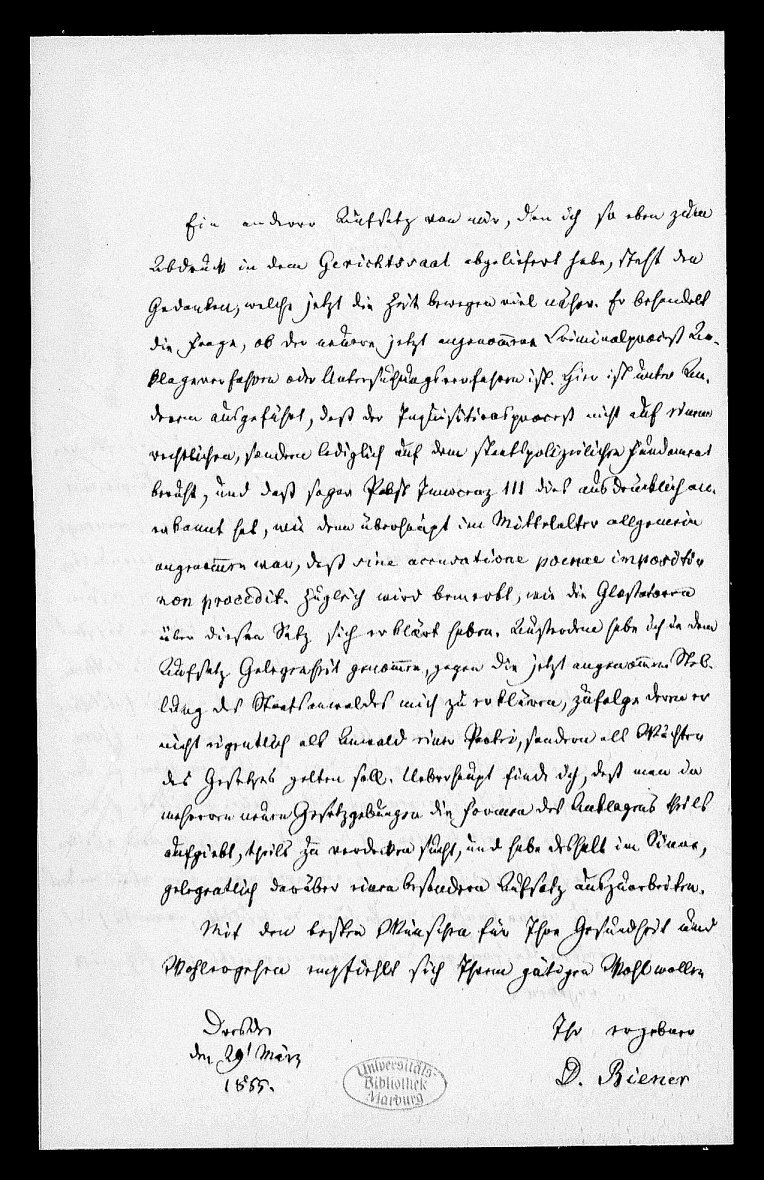 Ein anderer Aufsatz von mir, den ich so eben zum
Abdruck in dem Gerichtssaal abgeliefert habe, steht den
Gedanken, welche jetzt die Zeit bewegen viel näher. Er behandelt
die Frage, ob der neuere jetzt angenommene Criminalproceß An-
klageverfahren oder Untersuchungsverfahren ist. Hier ist unter An-
derem ausgeführt, daß der Inquisitionsproceß nicht auf einem
rechtlichen, sondern lediglich auf dem staatspolizeilichen Fundament
beruht, und daß sogar Pabst Innocenz III dies ausdrücklich an-
erkannt hat, wie denn überhaupt im Mittelalter allgemein
angenommen war, daß sine accusatione poenae impositio
non procedit. Zugleich wird bemerkt, wie die Glossatoren
über diesen Satz sich erklärt haben. Außerdem habe ich in dem
Aufsatz Gelegenheit genommen, gegen die jetzt angenommene Stel-
lung des Staatsanwaldes mich zu erklären, zufolge deren er
nicht eigentlich als Anwald einer Partei, sondern als Wächter
des Gesetzes gelten soll. Ueberhaupt finde ich, daß man in
mehreren neuen Gesetzgebungen die Formen des Anklagens theils
aufgiebt, theils zu verdecken sucht, und habe deshalb im Sinne,
gelegentlich darüber einen besondern Aufsatz auszuarbeiten.
Mit den besten Wünschen für Ihre Gesundheit und
Wohlergehen empfiehlt sich Ihrem gütigen Wohlwollen
Dresden
den 29t März
1855.
Ihr ergebner
D. Biener
Universitäts-
Bibliothek
Marburg